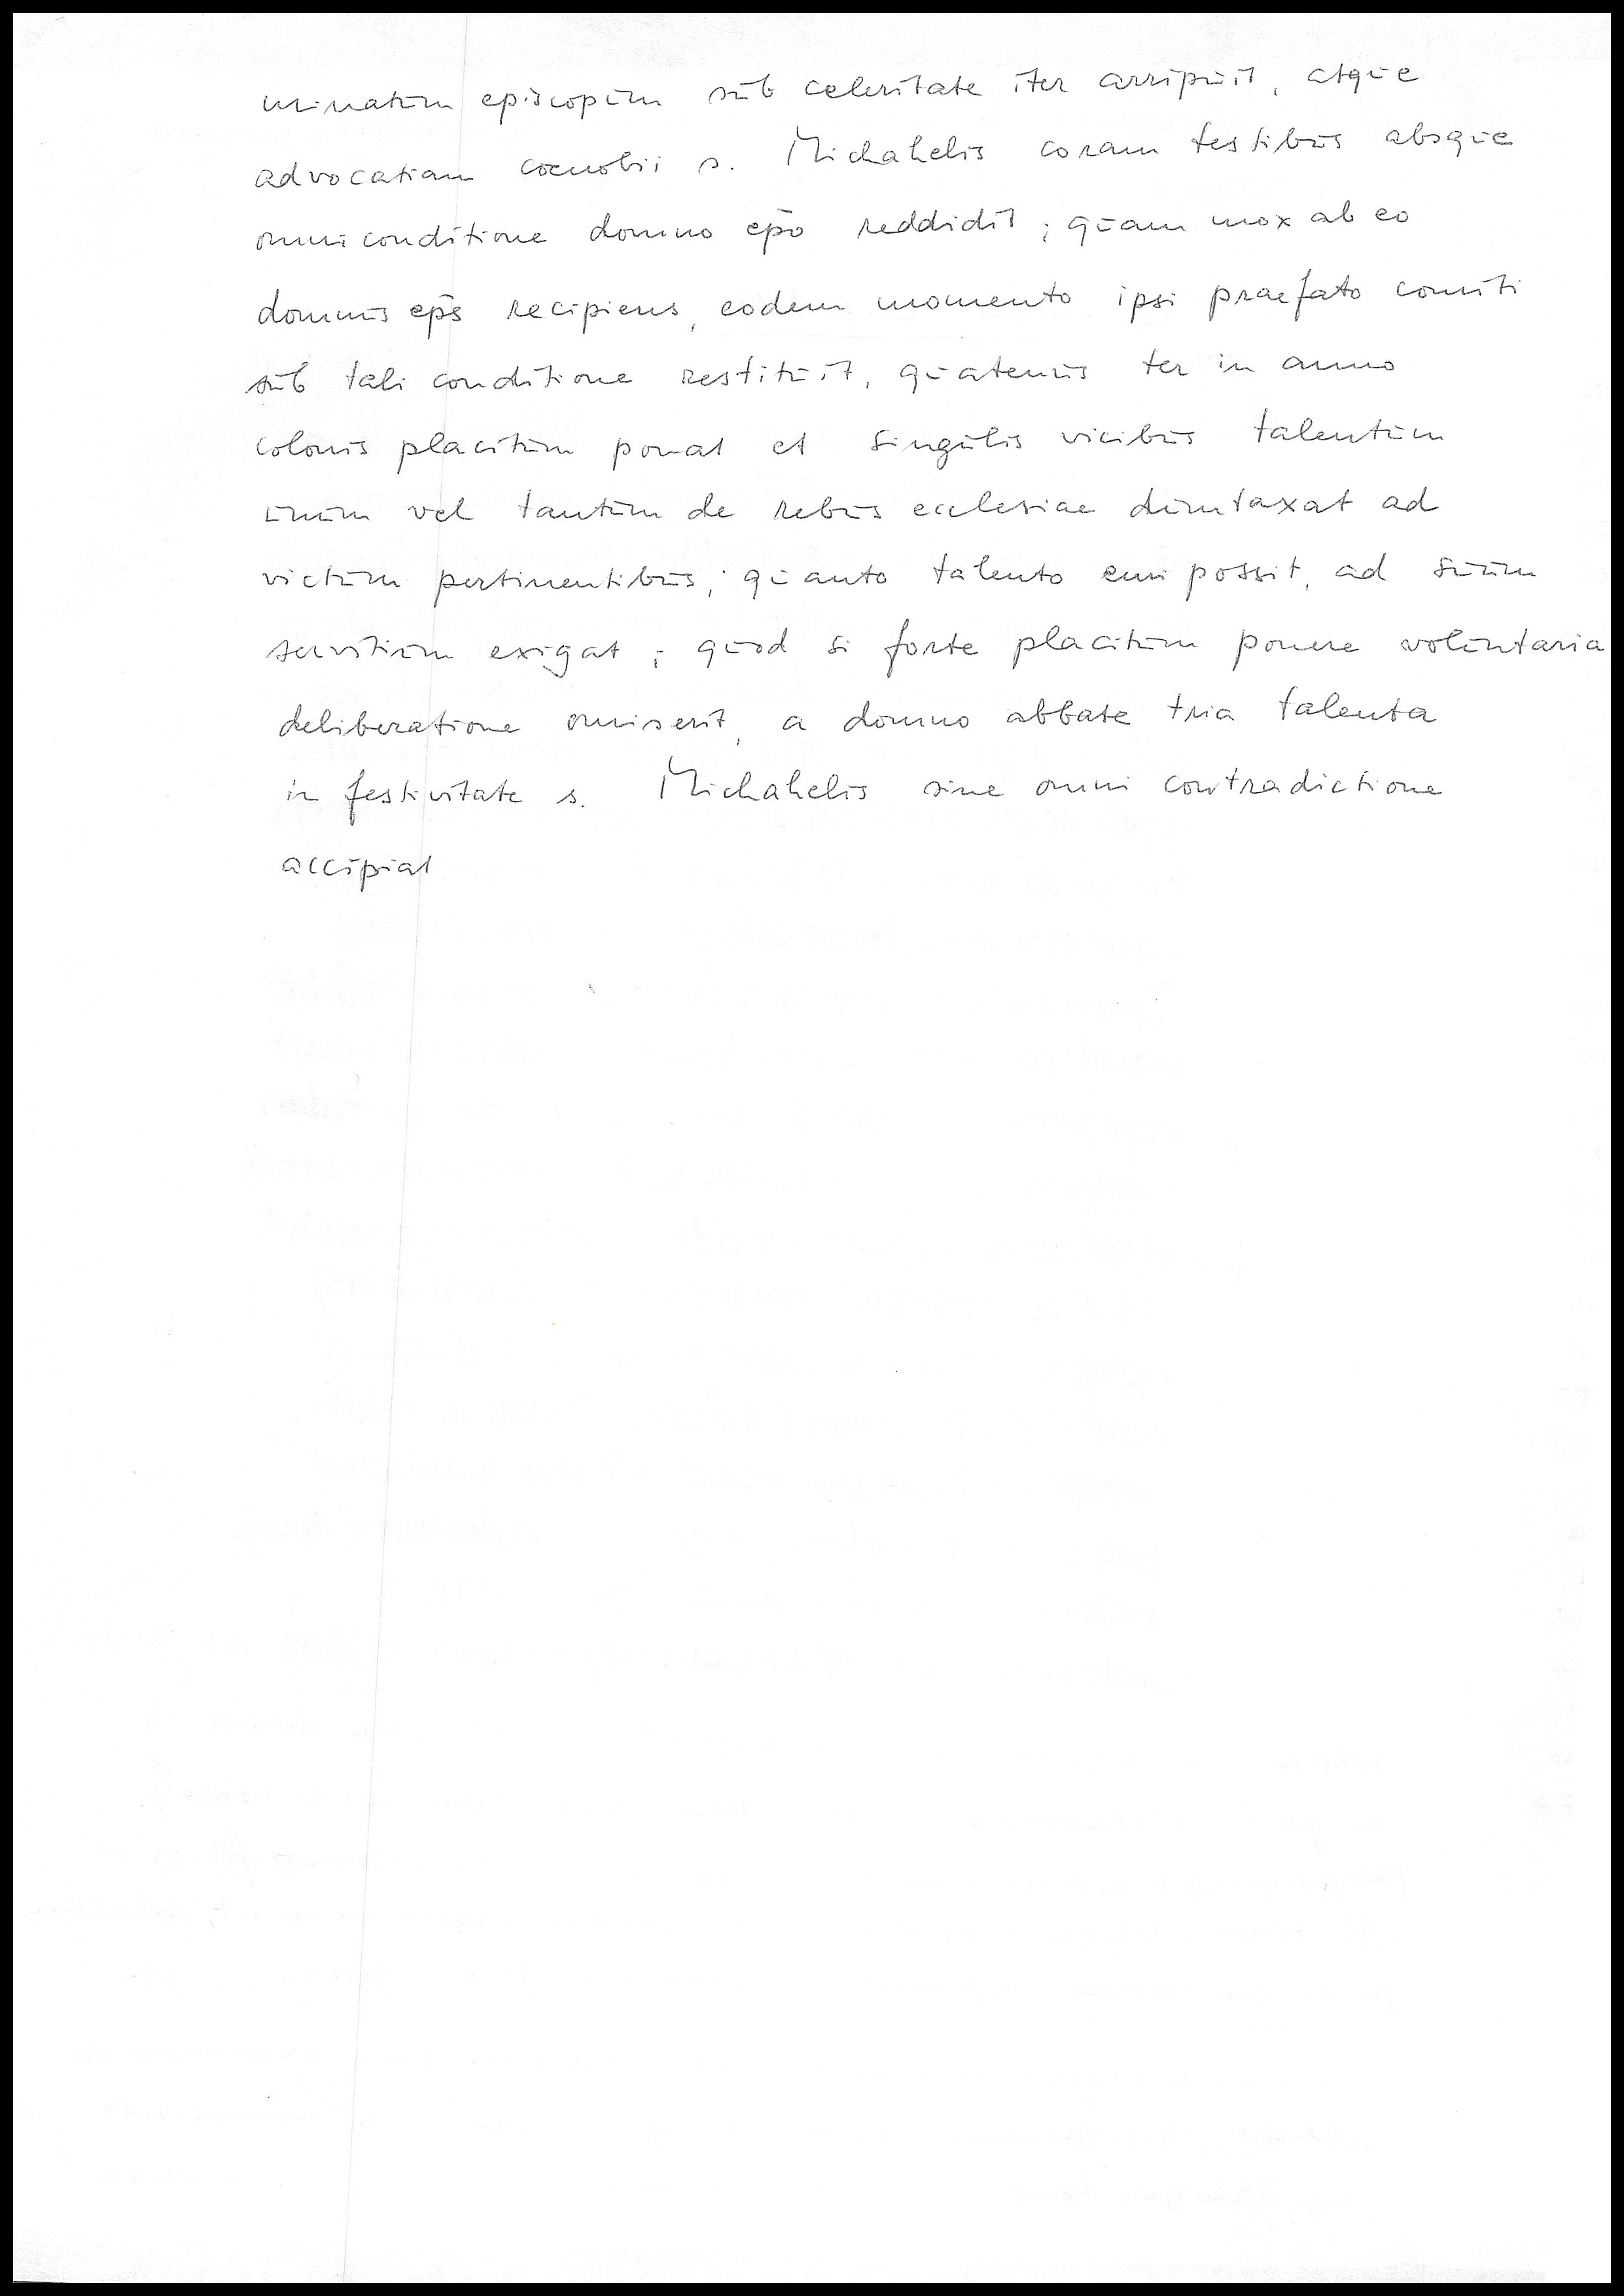 minatum episcopum sub celeritate iter arripuit, atque
advocatiam coenobii s. Michahelis coram testibus absque
omni conditione domno ep̄o reddidit; quam mox ab eo
domnus ep̄s recipiens, eodem momento ipsi praefato comiti
sub tali conditione restituit, quatenus ter in anno
colonis placitum ponat et singulis vicibus talentum
unum vel tantum de rebus ecclesiae dumtaxat ad
victum pertinentibus, quanto talento emi possit, ad suum
servitium exigat; quod si forte placitum ponere voluntaria
deliberatione omiserit, a domno abbate tria talenta
in festivitate s. Michahelis sine omni contradictione
accipiat